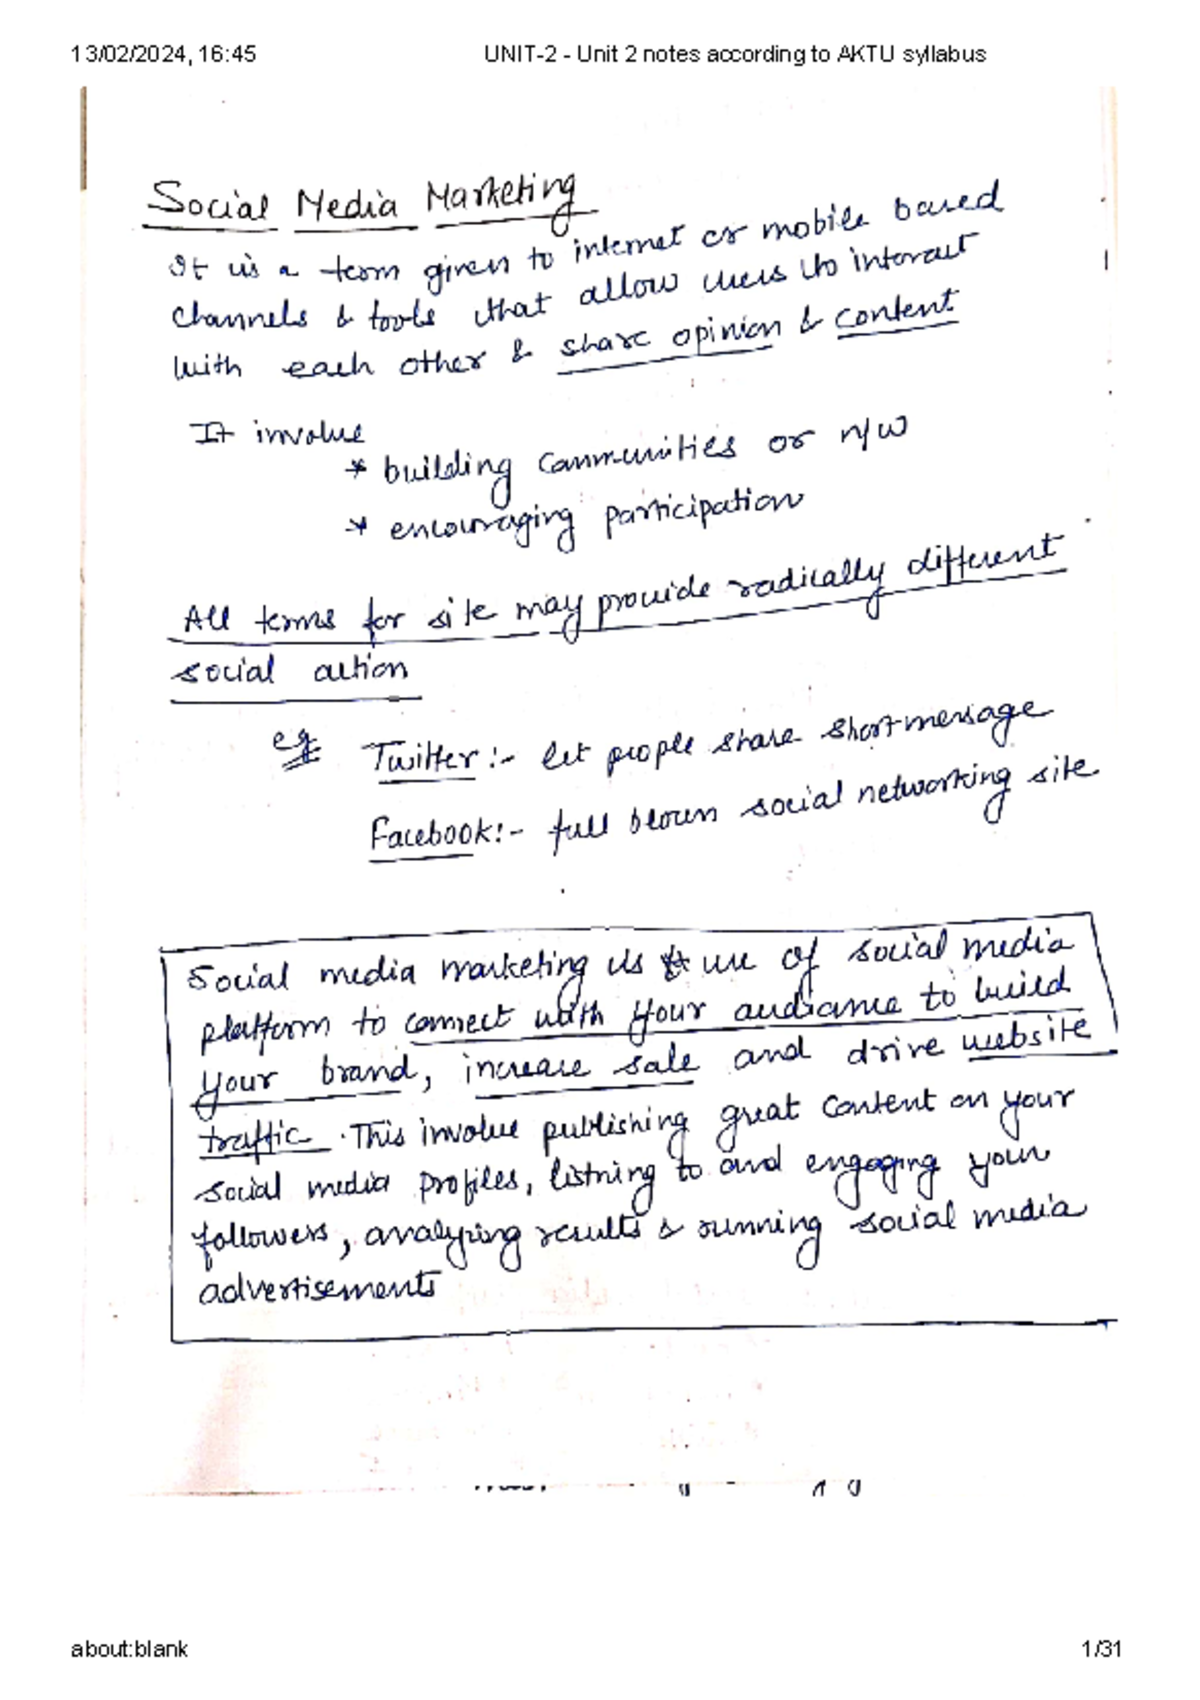 13/02/2024, 16:45 UNIT-2 - Unit 2 notes according to AKTU syllabus
Social Media Marketing
It is a term given to internet or mobile based
channels & tools that allow users to interact
with each other & share opinion & content
It involve
* building communities or n/w
* encouraging participation
All terms for site may provide radically different
social action
eg Twitter :- let people share short message
Facebook :- full blown social networking site
Social media marketing is use of social media
platform to connect with your audiance to build
your brand, increase sale and drive website
traffic. This involve publishing great content on your
social media profiles, listning to and engaging your
followers, analyzing results & running social media
advertisements
about:blank 1/31